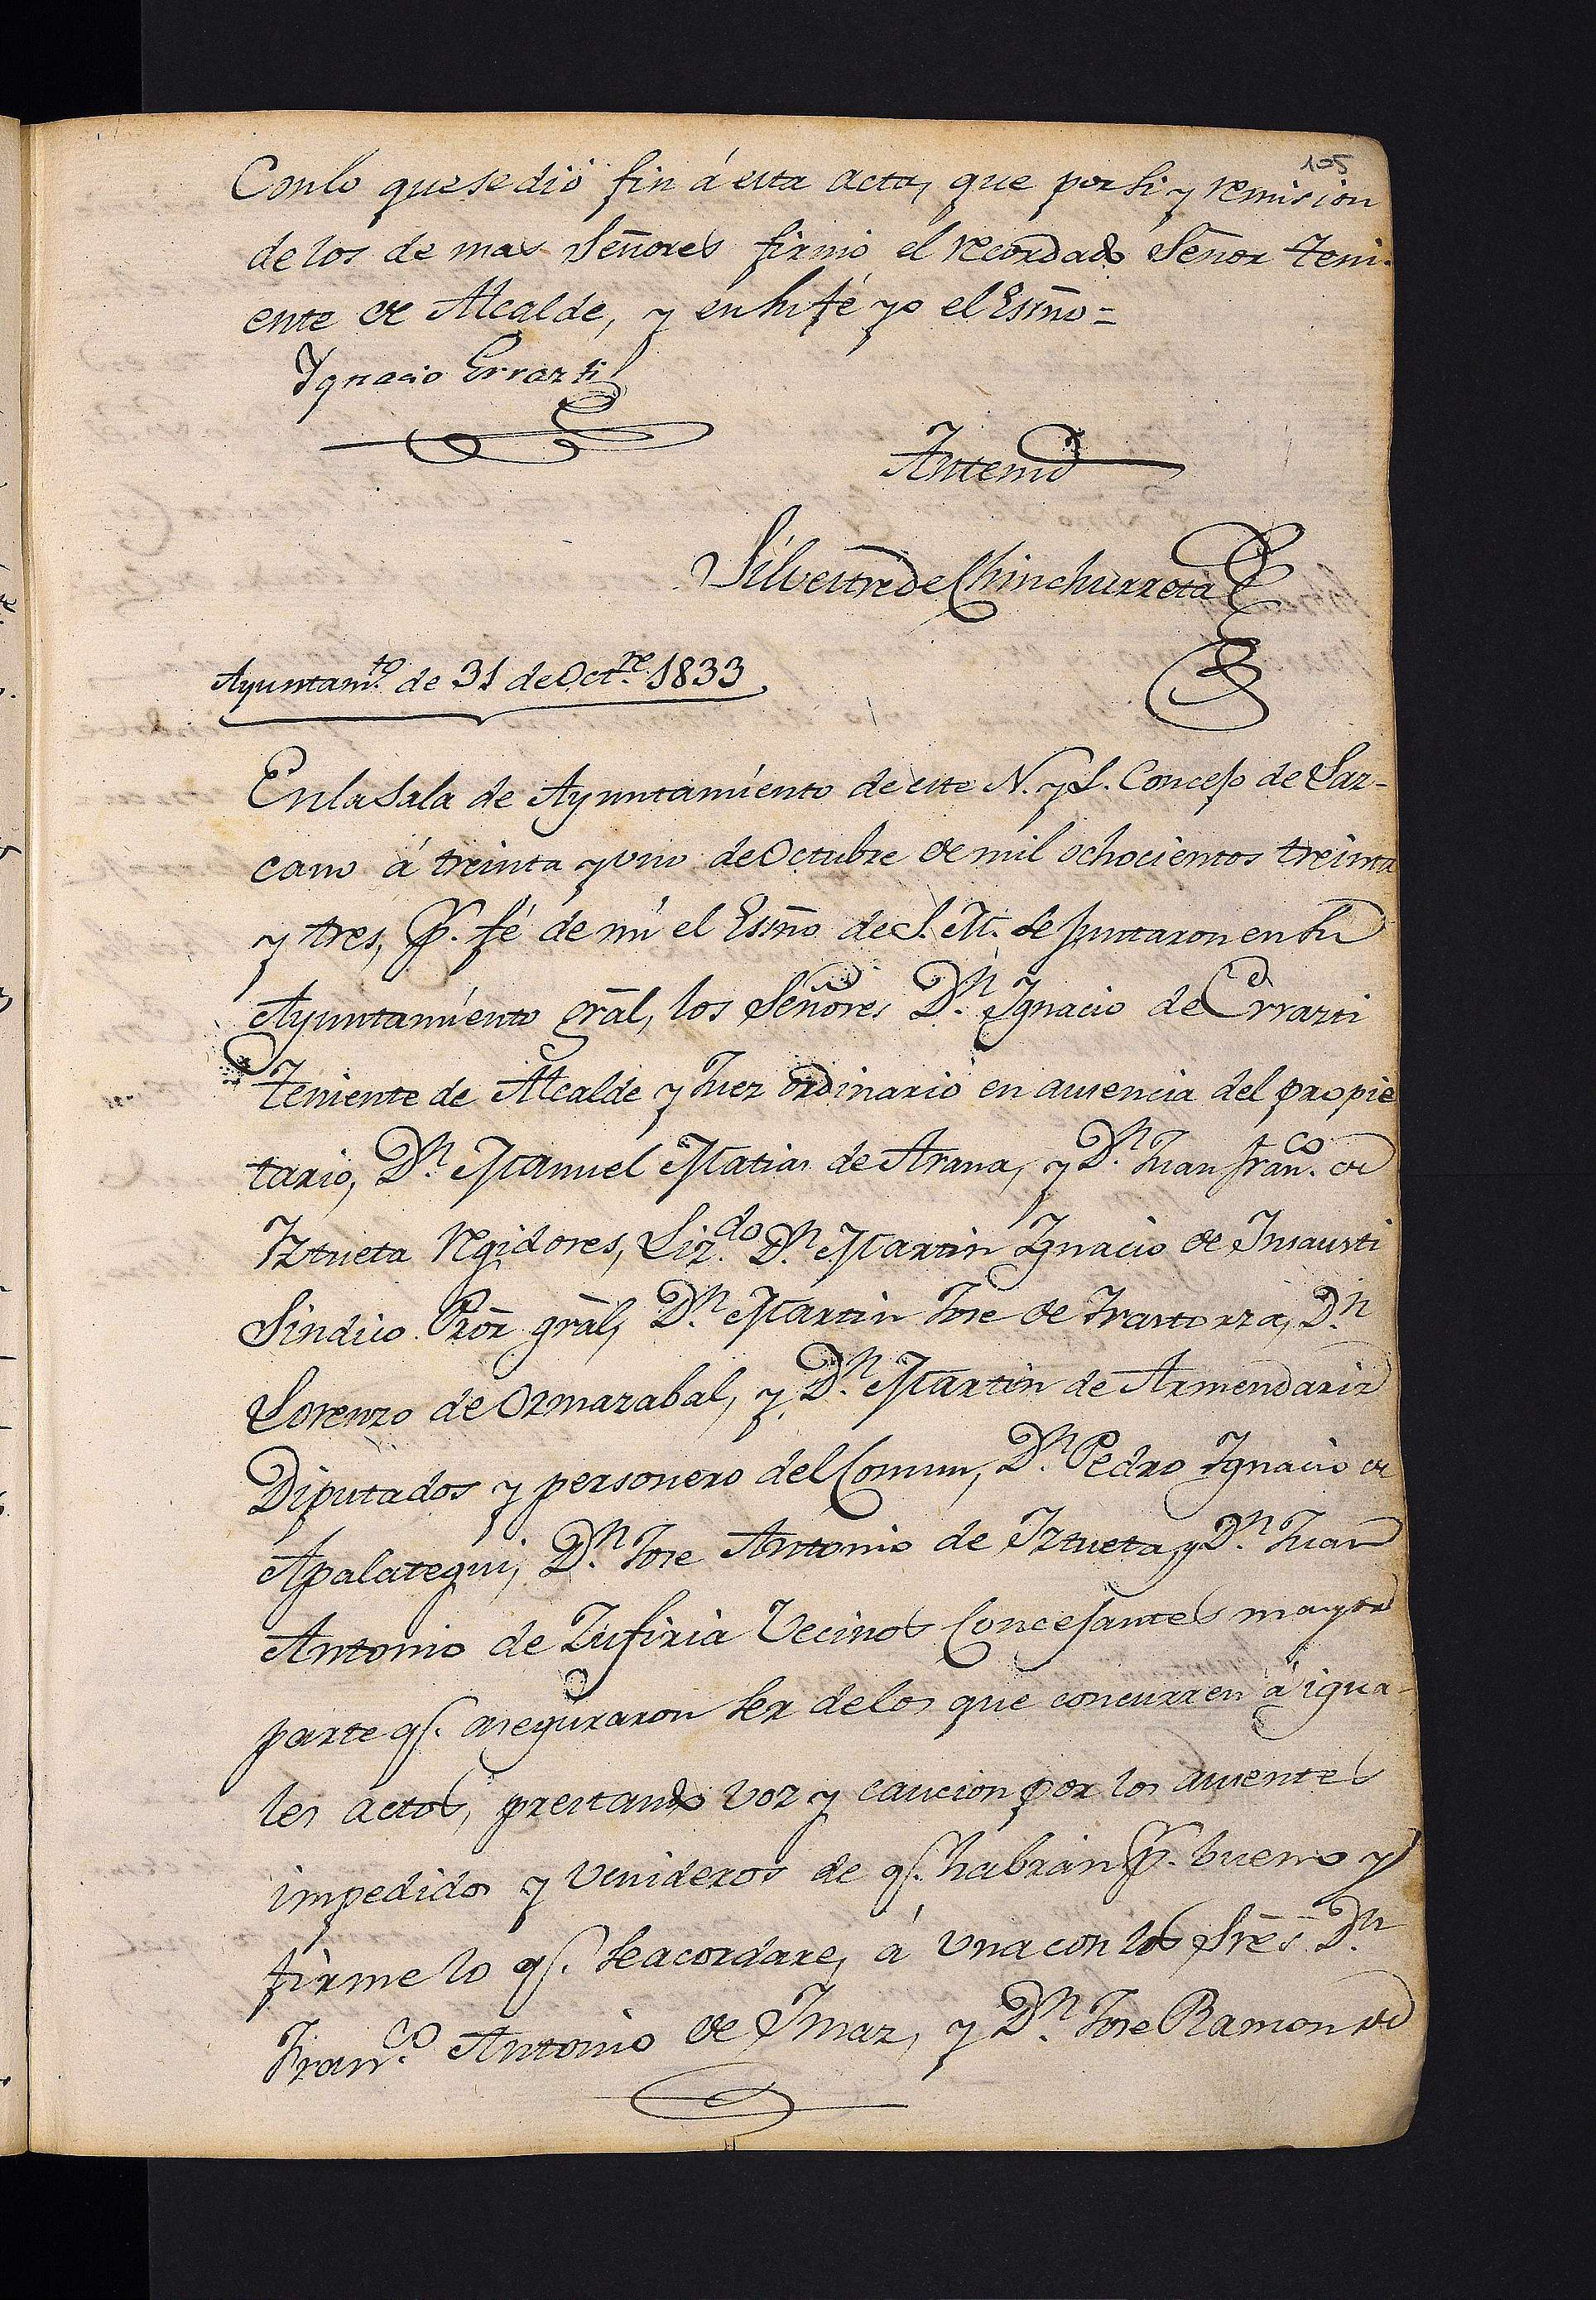 105
Con lo que se dió fin á esta acta, que por si y remision
de los de mas Señores firmó el recordado Señor Teni-
ente de Alcalde, y en su fé yo el Essño =
Ygnacio Errazti
Antemi
Silvestre de Chinchurreta
Ayuntam.to de 31 de Oct.re 1833
En la Sala de Ayuntamiento de este N. y L. Concejo de Laz-
cano á treinta y uno de Octubre de mil ochocientos treinta
y tres, p.r fé de mi el Essño de S. M. se juntaron en su
Ayuntamiento grâl, los Señores D.n Ignacio de Errazti
Teniente de Alcalde y Juez ordinario en ausencia del propie
tario, D.n Manuel Matias de Arana, y D.n Juan Fran.co de
Iztueta Regidores, Liz.do D.n Martin Ignacio de Insausti
Sindico Prôr grâl, D.n Martin Jose de Irastorza, D.n
Lorenzo de Ormazabal, y D.n Martin de Armendariz
Diputados y personero del Comun, D.n Pedro Ignacio de
Apalategui, D.n Jose Antonio de Iztueta y D.n Juan
Antonio de Zufiria Vecinos Concejantes mayor
parte q.e aseguraron ser de los que concurren á igua-
les actos, prestando voz y caucion por los ausentes
impedidos y venideros de q.e habrán p.r bueno y
firme lo q.e se acordare, á una con los Sres D.n
Fran.co Antonio de Imaz, y D.n Jose Ramon de